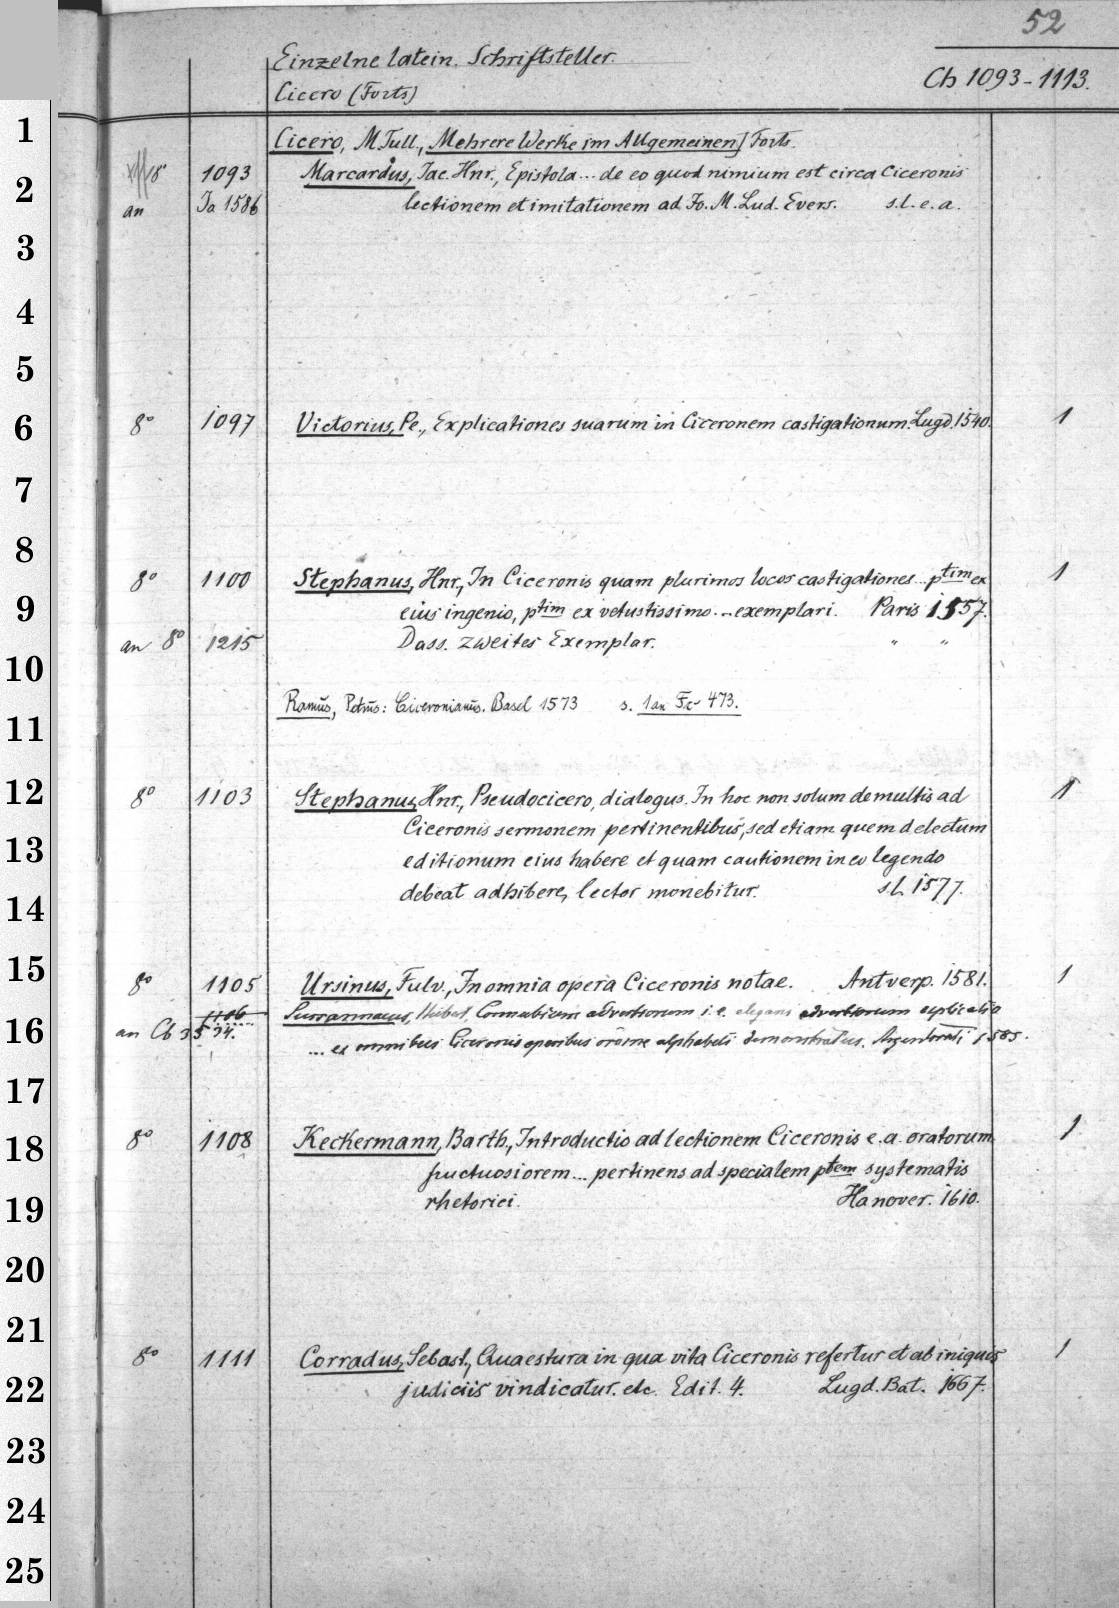 52
Einzelne latein. Schriftsteller.
Cicero (Forts)
Ch 1093-1113.
1
Cicero, M. Tull., Mehrere Werke im Allgemeinen] Forts.
2
8° 1093 Marcardus, Jac. Hnr., Epistola... de eo quod nimium est circa Ciceronis
an Ja 1586 lectionem et imitationem ad Jo. M. Lud. Evers. s.l.e.a.
3
4
5
6
8° 1097 Victorius, Pe., Explicationes suarum in Ciceronem castigationum. Lugd. 1540. 1
7
8
8° 1100 Stephanus, Hnr., In Ciceronis quam plurimos locos castigationes... ptim ex 1
9
eius ingenio, ptim ex vetustissimo... exemplari. Paris 1557.
an 8° 1215 Dass. zweites Exemplar. " "
10
Ramus, Petrus: Ciceronianus. Basel 1573 s. 1 an Fc 473.
11
12
8° 1103 Stephanus, Hnr., Pseudocicero, dialogus. In hoc non solum de multis ad 1
Ciceronis sermonem pertinentibus, sed etiam quem delectum
13
editionum eius habere et quam cautionem in eo legendo
debeat adhibere, lector monebitur. s.l. 1577.
14
15
8° 1105 Ursinus, Fulv., In omnia opera Ciceronis notae. Antverp. 1581. 1
1106 Connubium adverbiorum i.e. elegans adverbiorum explicatio
16
an Cb 3574. ... ex omnibus Ciceronis operibus demonstratus. Argentorati 1585.
17
18
8° 1108 Keckermann, Barth., Introductio ad lectionem Ciceronis e.a. oratorum 1
fructuosiorem... pertinens ad specialem ptem systematis
19
rhetorici. Hanover. 1610.
20
21
8° 1111 Corradus, Sebast., Quaestura in qua vita Ciceronis refertur et ab iniquis 1
22
judiciis vindicatur. etc. Edit. 4. Lugd. Bat. 1667.
23
24
25